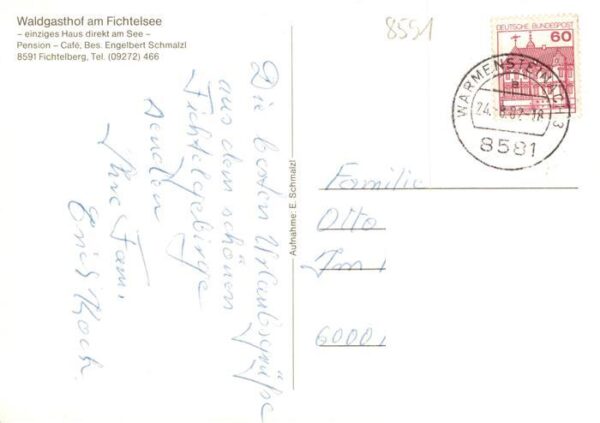 Waldgasthof am Fichtelsee
– einziges Haus direkt am See –
Pension – Café, Bes. Engelbert Schmalzl
8591 Fichtelberg, Tel. (09272) 466
8591
DEUTSCHE BUNDESPOST
60
WARMENSTEINACH 3
a
24.-8.82-18
8581
Die besten Urlaubsgrüße
aus dem schönen
Fichtelgebirge
senden
Ihre Fam.
Erich Koch.
Aufnahme: E. Schmalzl
Familie
Otto
Im
6000